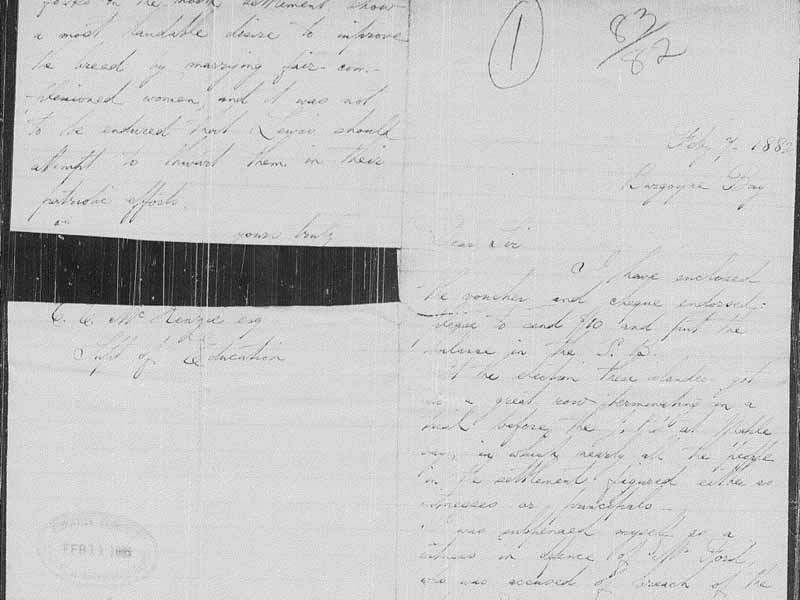 in the north settlement show
a most laudable desire to improve
the breed by marrying fair com-
plexioned women, and it was not
to be endured that Lewis should
attempt to thwart them in their
patriotic efforts.
yours truly
C. C. McKenzie esq
Supt of Education
FEB 11
1
83/82
Feby 1882
Burgoyne Bay
Dear Sir
I have enclosed
the voucher and cheque endorsed
please to send $10 and put the
balance in the S. B.
At the election these islanders got
a great row terminating in a
before the at Maple
Bay, in which nearly all the people
in the settlement figured either as
witnesses or principals.
I was subpenaed myself as a
witness in defence of Mr Ford,
who was accused of breach of the